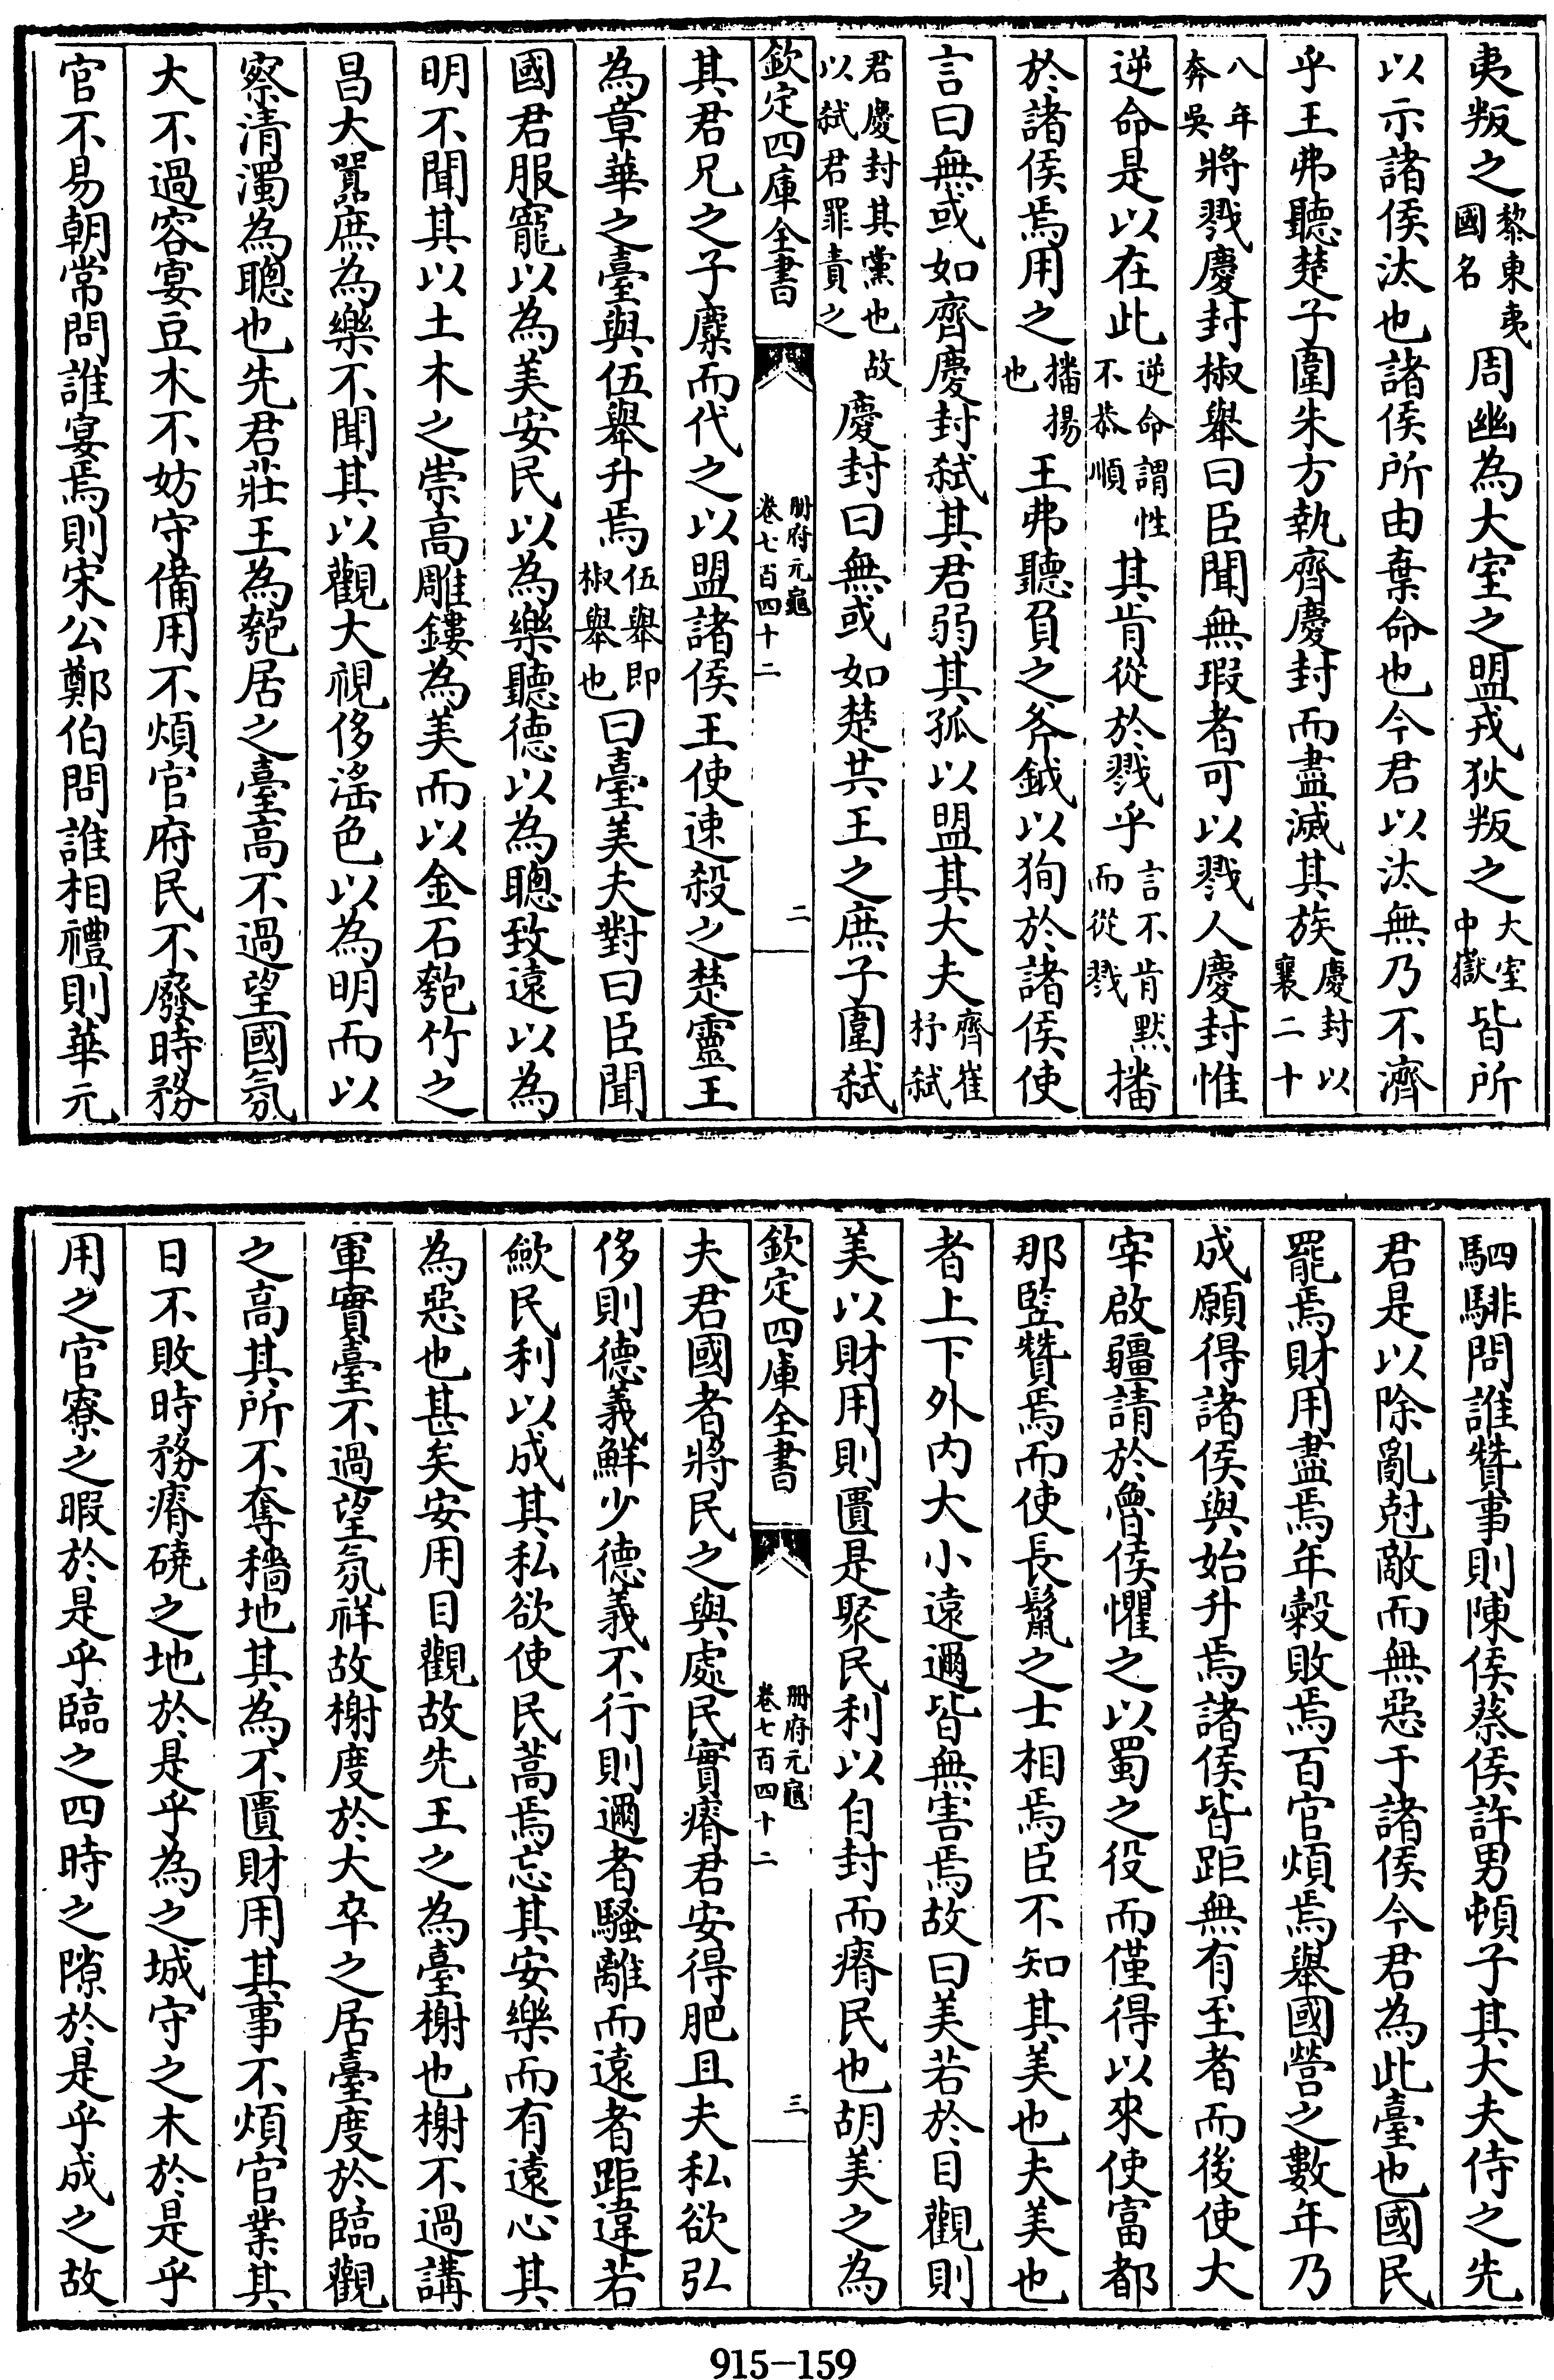 夷叛之黎東夷國名周幽為大室之盟戎狄叛之大室中嶽皆所
以示諸侯汰也諸侯所由棄命也今君以汰無乃不濟
乎王弗聽楚子圍朱方執齊慶封而盡滅其族慶封以襄二十
八年奔吳將戮慶封椒舉曰臣聞無瑕者可以戮人慶封惟
逆命是以在此逆命謂性不恭順其肯從於戮乎言不肯默而從戮播
於諸侯焉用之播揚也王弗聽負之斧鉞以狥於諸侯使
言曰無或如齊慶封弒其君弱其孤以盟其大夫齊崔杼弒
君慶封其黨也故以弒君罪責之慶封曰無或如楚共王之庶子圍弒
欽定四庫全書
冊府元龜
卷七百四十二
二
其君兄之子麇而代之以盟諸侯王使速殺之楚靈王
為章華之臺與伍舉升焉伍舉即椒舉也曰臺美夫對曰臣聞
國君服寵以為美安民以為樂聽德以為聰致遠以為
明不聞其以土木之崇高雕鏤為美而以金石匏竹之
昌大嚻庶為樂不聞其以觀大視侈淫色以為明而以
察清濁為聰也先君莊王為匏居之臺高不過望國氛
大不過容宴豆木不妨守備用不煩官府民不廢時務
官不易朝常問誰宴焉則宋公鄭伯問誰相禮則華元
駟騑問誰贊事則陳侯蔡侯許男頓子其大夫侍之先
君是以除亂尅敵而無惡于諸侯今君為此臺也國民
罷焉財用盡焉年穀敗焉百官煩焉舉國營之數年乃
成願得諸侯與始升焉諸侯皆距無有至者而後使大
宰啟疆請於魯侯懼之以蜀之役而僅得以來使富都
那豎贊焉而使長鬛之士相焉臣不知其美也夫美也
者上下外内大小遠邇皆無害焉故曰美若於目觀則
美以財用則匱是聚民利以自封而瘠民也胡美之為
欽定四庫全書
冊府元龜
卷七百四十二
三
夫君國者將民之與處民實瘠君安得肥且夫私欲弘
侈則德義鮮少德義不行則邇者騷離而遠者距違若
歛民利以成其私欲使民蒿焉忘其安樂而有遠心其
為惡也甚矣安用目觀故先王之為臺榭也榭不過講
軍實臺不過望氛祥故榭度於大卒之居臺度於臨觀
之高其所不奪穡地其為不匱財用其事不煩官業其
日不敗時務瘠磽之地於是乎為之城守之木於是乎
用之官寮之暇於是乎臨之四時之隙於是乎成之故
915-159